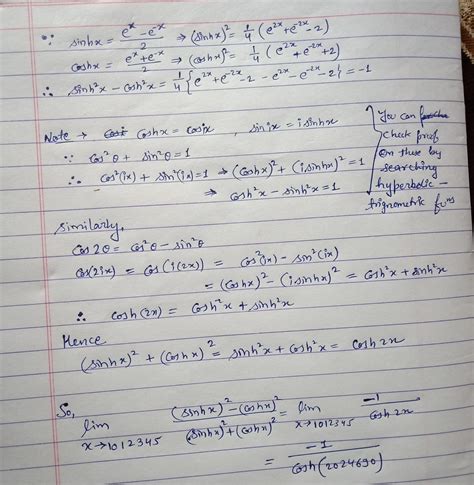 ∵ sinhx = (e^x - e^-x)/2 ⇒ (sinhx)² = 1/4 (e^2x + e^-2x - 2)
coshx = (e^x + e^-x)/2 ⇒ (coshx)² = 1/4 (e^2x + e^-2x + 2)
∴ sinh²x - cosh²x = 1/4 {e^2x + e^-2x - 2 - e^2x - e^-2x - 2} = -1
Note → coshx = cosix , sin ix = i sinhx
∵ cos²θ + sin²θ = 1
∴ cos²(ix) + sin²(ix) = 1 ⇒ (coshx)² + (i sinhx)² = 1
⇒ cosh²x - sinh²x = 1
You can
check proof
on these by
searching
hyperbolic -
trignometric fxns
similarly,
cos2θ = cos²θ - sin²θ
cos(2ix) = cos(i(2x)) = cos²(ix) - sin²(ix)
= (coshx)² - (i sinhx)² = cosh²x + sinh²x
∴ cosh(2x) = cosh²x + sinh²x
Hence
(sinhx)² + (coshx)² = sinh²x + cosh²x = cosh2x
So,
lim x→1012345 ((sinhx)² - (coshx)²)/((sinhx)² + (coshx)²) = lim x→1012345 -1/cosh2x
= -1/cosh(2024690)